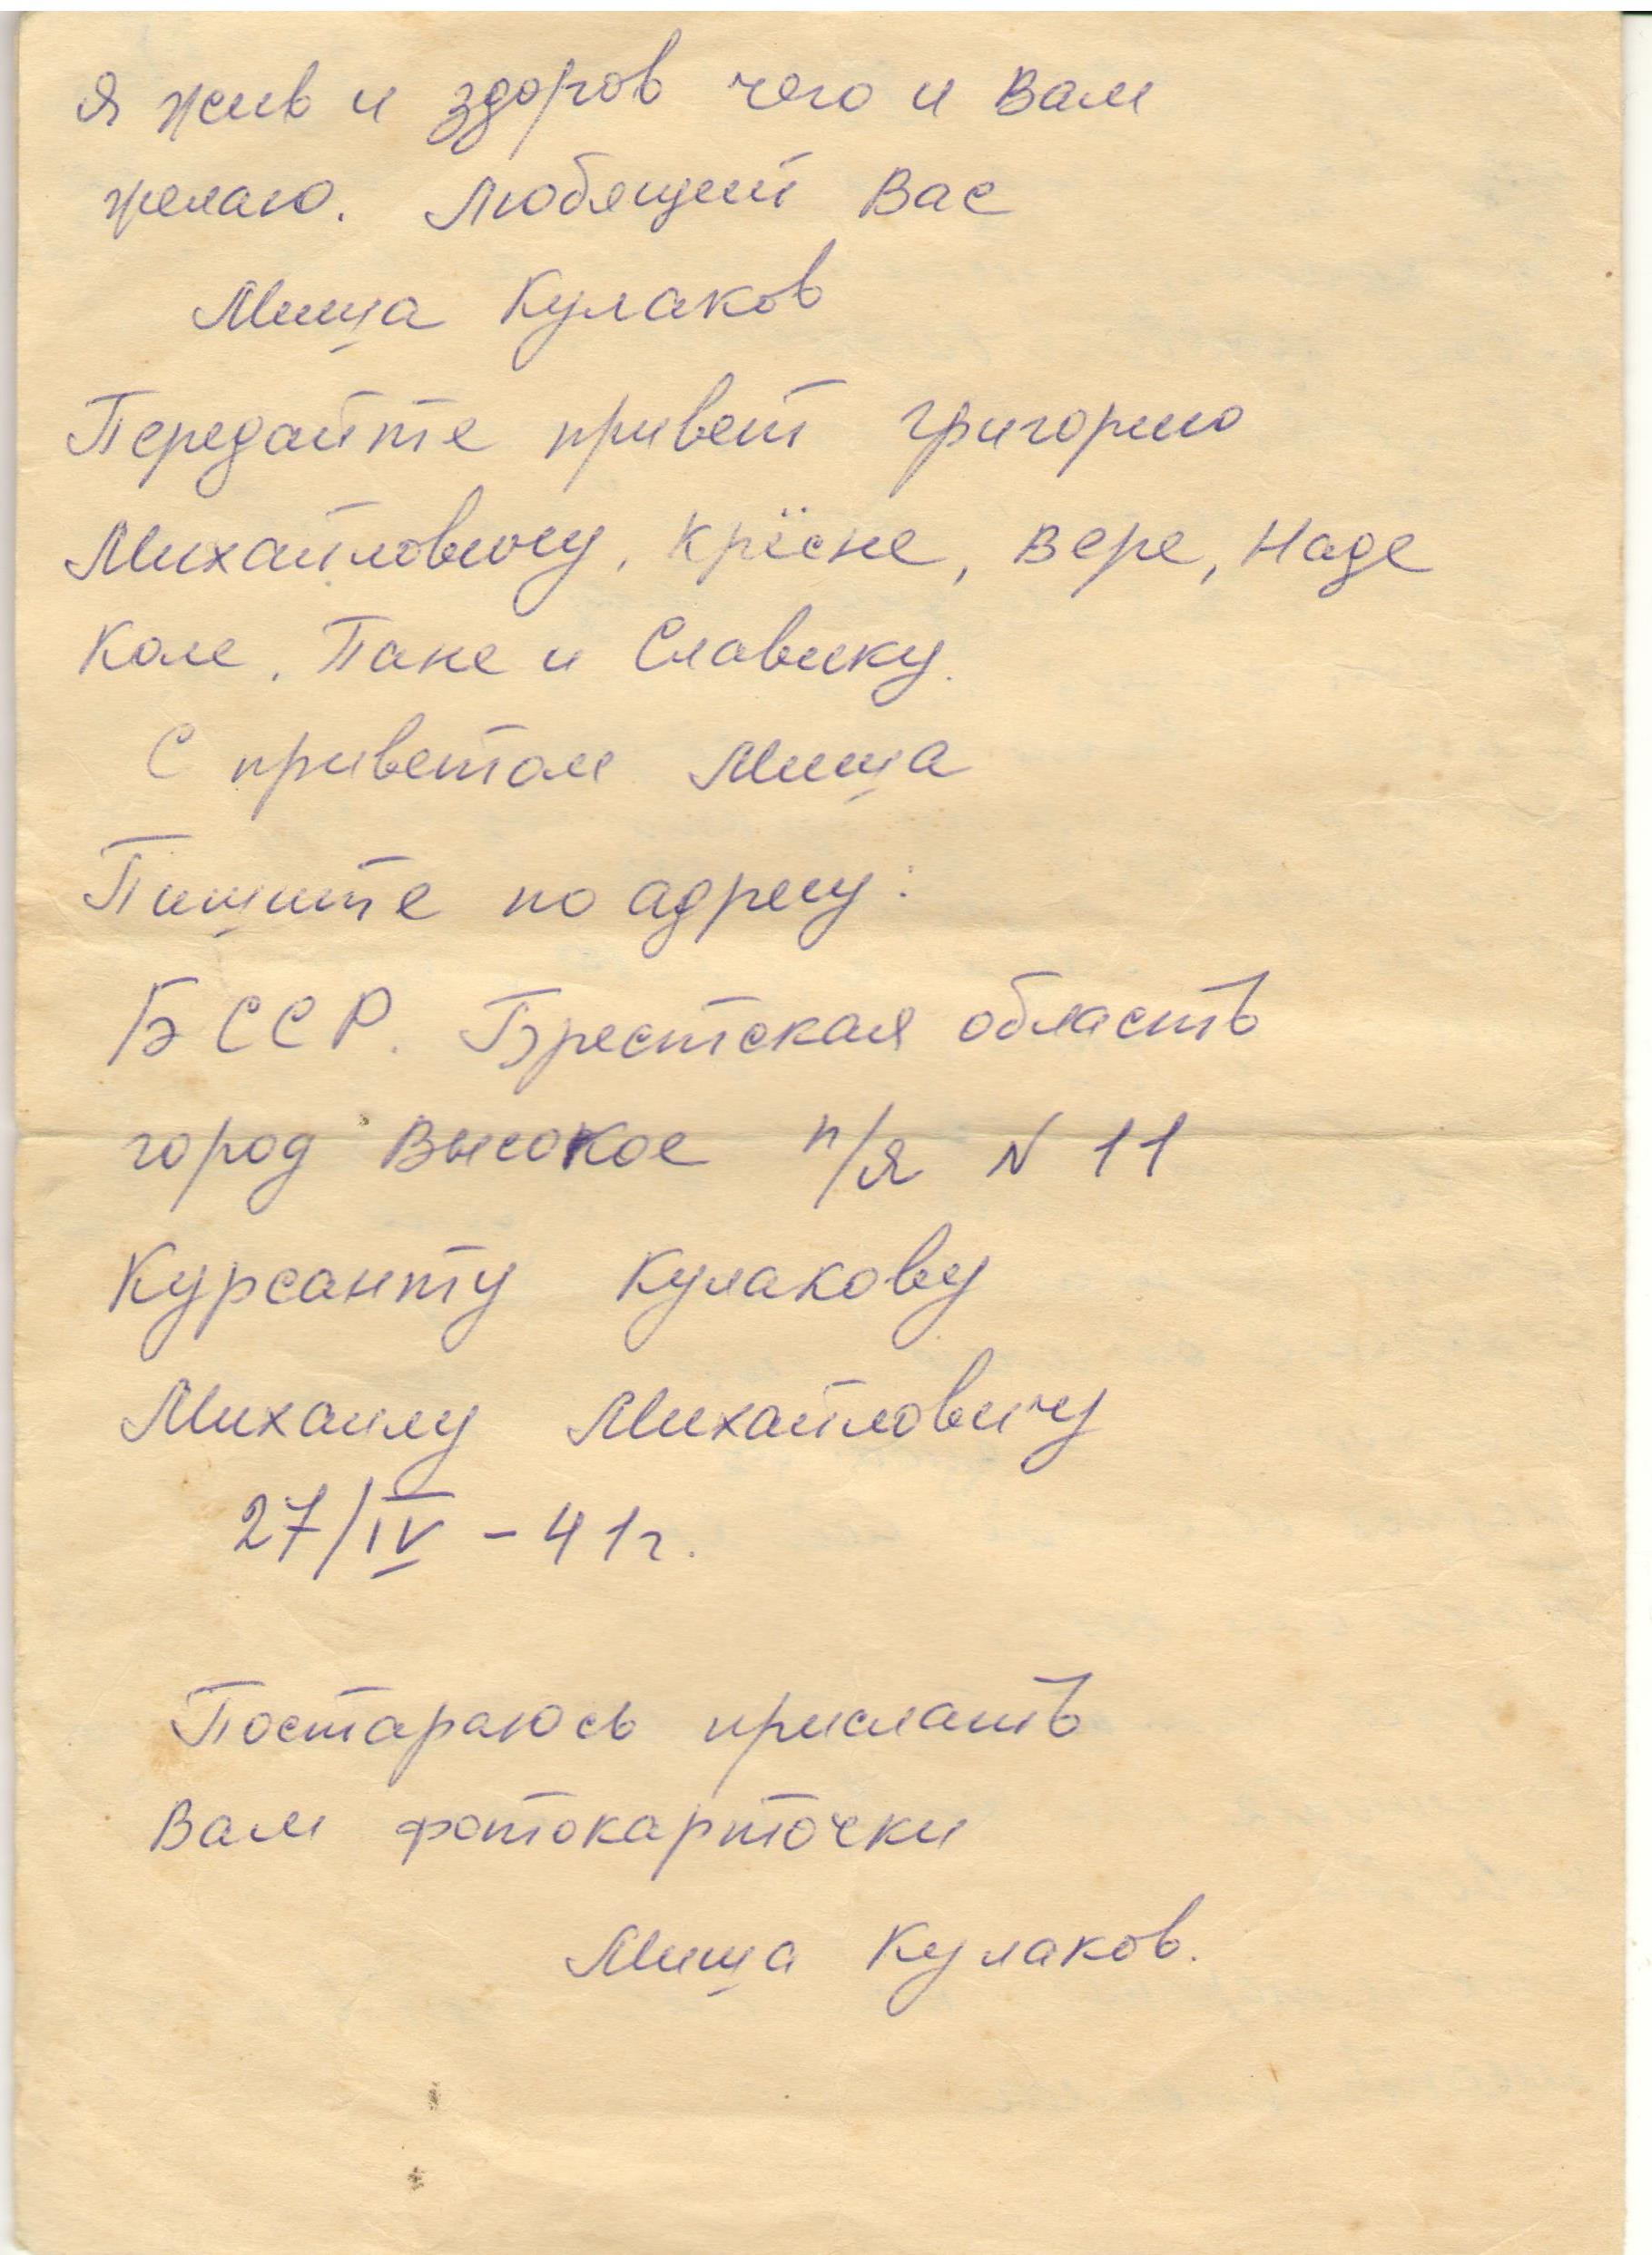 Я жив и здоров чего и Вам
желаю. Любящий Вас
Миша Кулаков
Передайте привет Григорию
Михайловичу, Крёсне, Вере, Наде
Коле, Пане и Славику.
С приветом Миша
Пишите по адресу:
БССР. Брестская область
город Высокое п/я N 11
Курсанту Кулакову
Михаилу Михайловичу
27/IV - 41г.
Постараюсь прислать
Вам фотокарточки
Миша Кулаков.